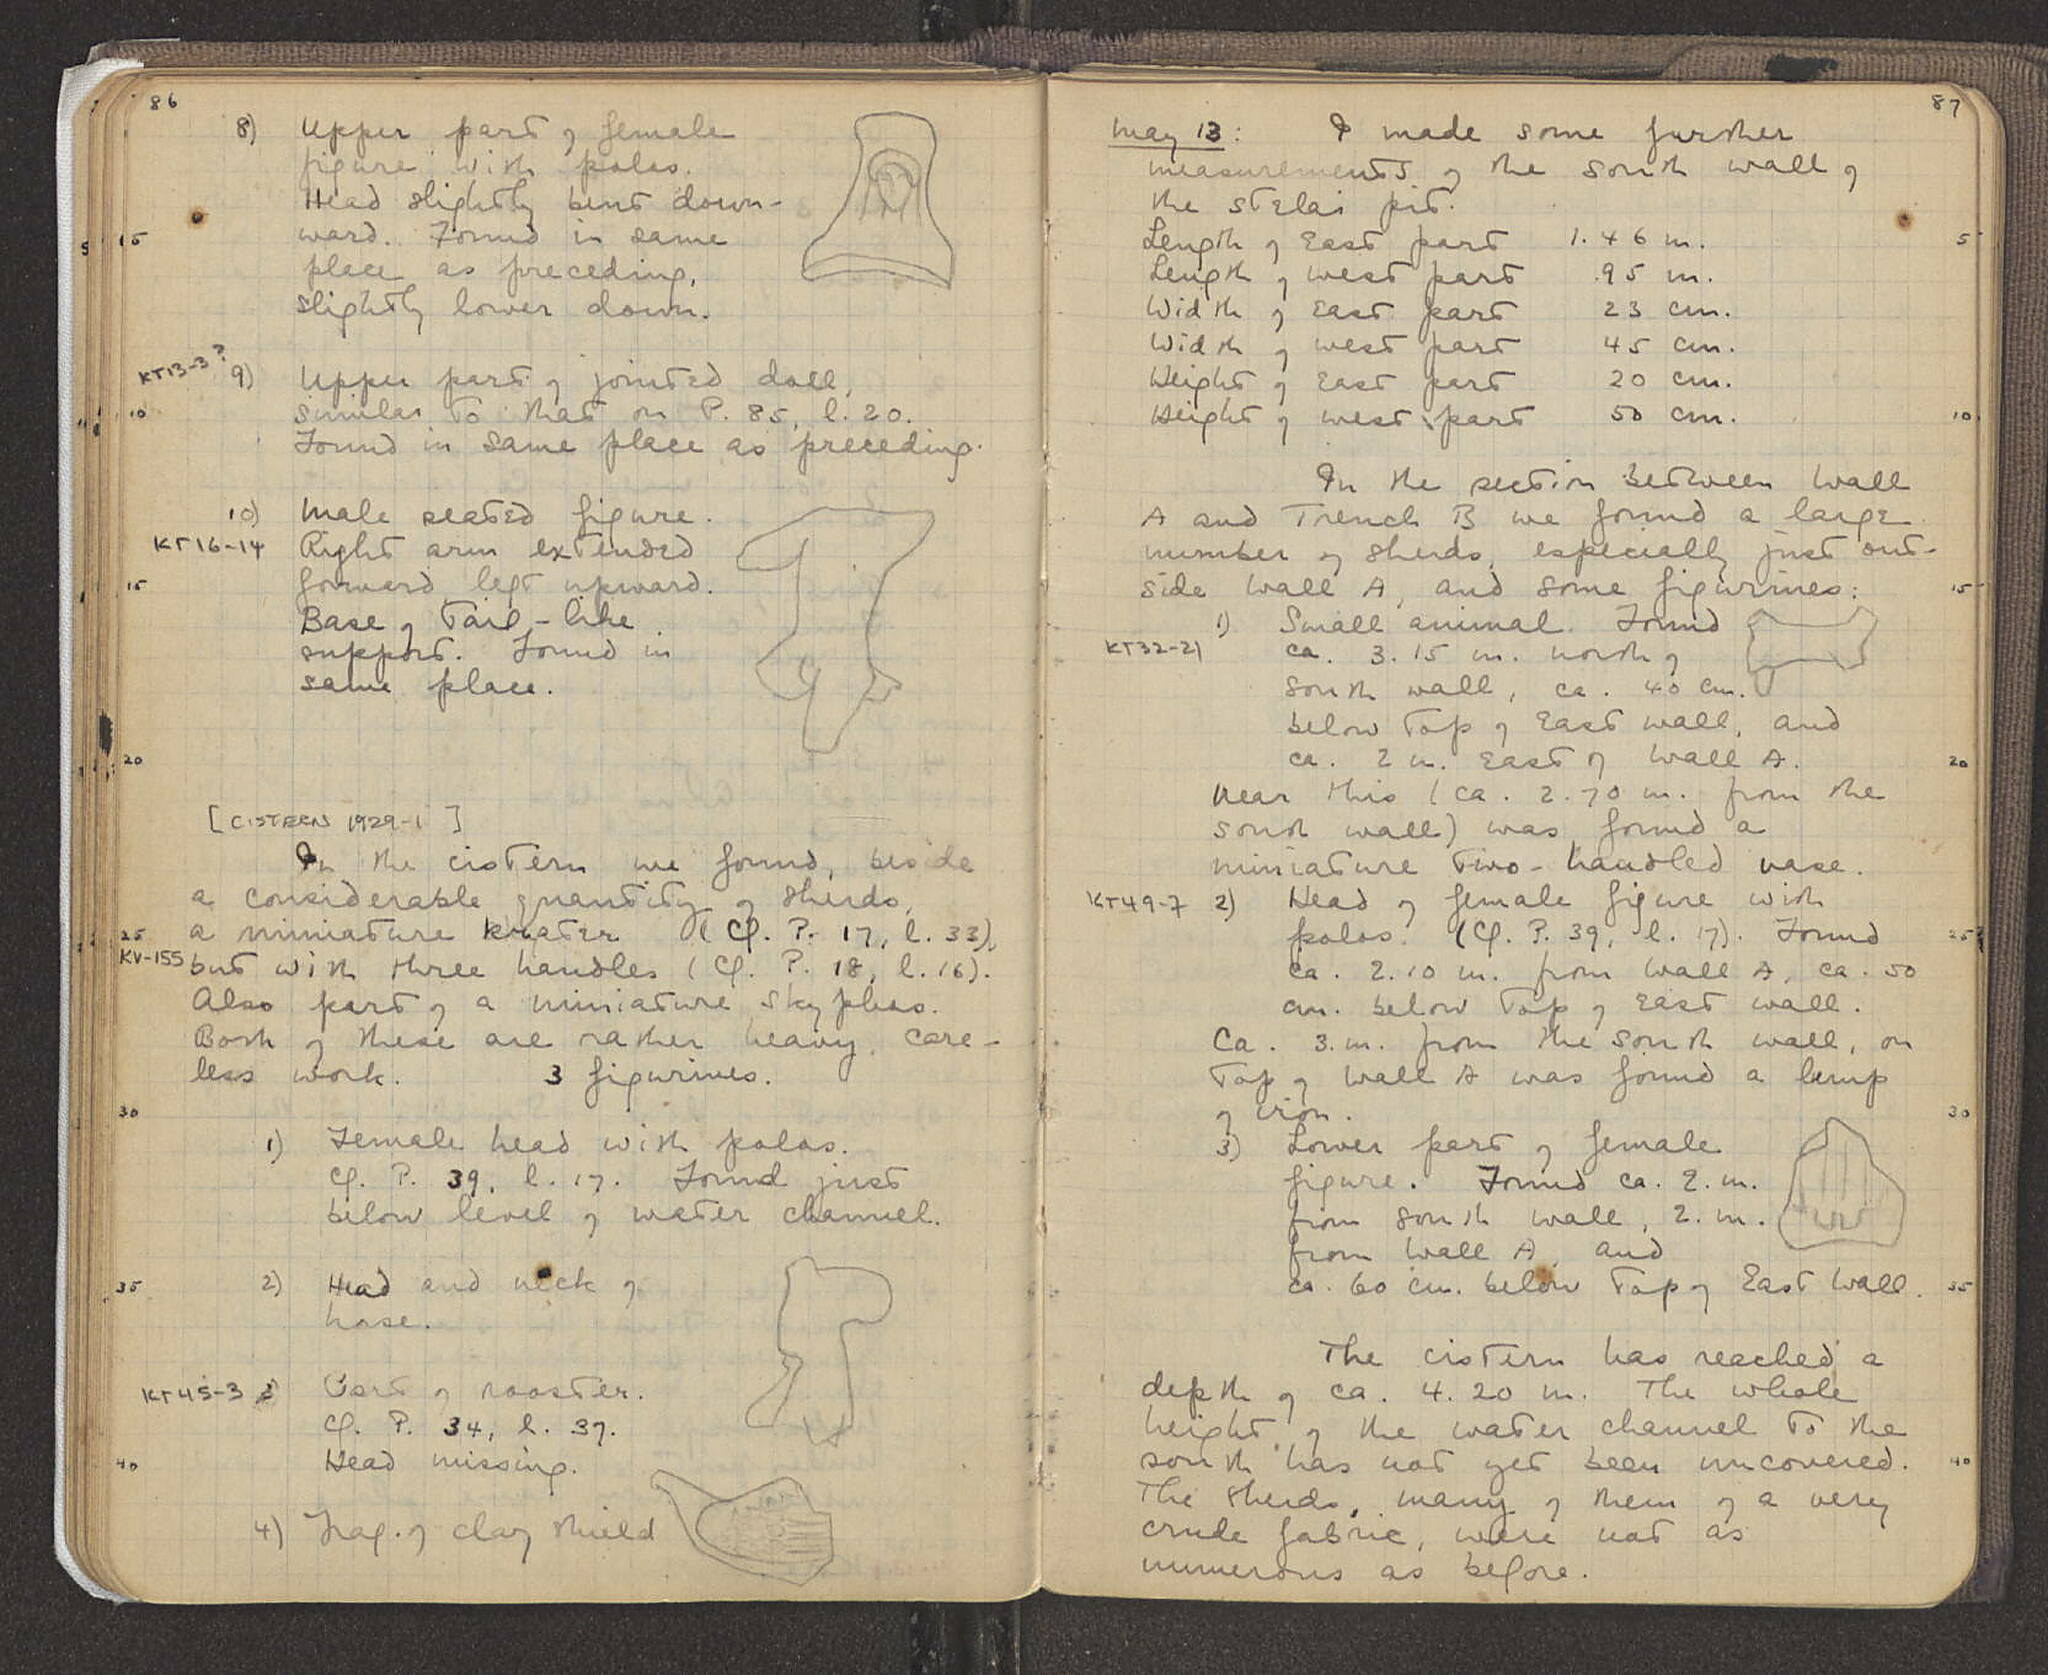 86
8) Upper part of female
figure with polos.
Head slightly bent down-
5 15
ward. Found in same
place as preceding,
slightly lower down.
KT13-3?
9) Upper part of jointed doll,
10
similar to that on P. 85, l. 20.
Found in same place as preceding.
10) Male seated figure.
KT16-14
Right arm extended
15
forward, left upward.
Base of tail-like
support. Found in
same place.
20
[CISTERN 1929-1]
In the cistern we found, beside
a considerable quantity of sherds,
25
a miniature krater (Cf. P. 17, l. 33),
KV-155
but with three handles (Cf. P. 18, l. 16).
Also part of a miniature skyphos.
Both of these are rather heavy, care-
less work. 3 figurines.
30
1) Female head with polos.
Cf. P. 39, l. 17. Found just
below level of water channel.
35
2) Head and neck of
horse.
KT45-3
3) Part of rooster.
Cf. P. 34, l. 37.
40
Head missing.
4) Frag. of clay shield
87
May 13: I made some further
measurements of the south wall of
the stelai pit.
Length of East part 1.46 m. 5
Length of west part .95 m.
Width of East part 23 cm.
Width of west part 45 cm.
Height of East part 20 cm.
Height of west part 50 cm. 10
In the section between Wall
A and Trench B we found a large
number of sherds, especially just out-
side Wall A, and some figurines: 15
1) Small animal. Found
KT32-21
ca. 3.15 m. north of
south wall, ca. 40 cm.
below top of East wall, and
ca. 2 m. East of Wall A. 20
Near this (ca. 2.70 m. from the
south wall) was found a
miniature two-handled vase.
KT49-7
2) Head of female figure with
polos. (Cf. P. 39, l. 17). Found 25
ca. 2.10 m. from Wall A, ca. 50
cm. below top of East wall.
Ca. 3.m. from the south wall, on
top of Wall A was found a lump
of iron. 30
3) Lower part of female
figure. Found ca. 2.m.
from south wall, 2.m.
from Wall A, and
ca. 60 cm. below top of East Wall. 35
The cistern has reached a
depth of ca. 4.20 m. The whole
height of the water channel to the
south has not yet been uncovered. 40
The sherds, many of them of a very
crude fabric, were not as
numerous as before.